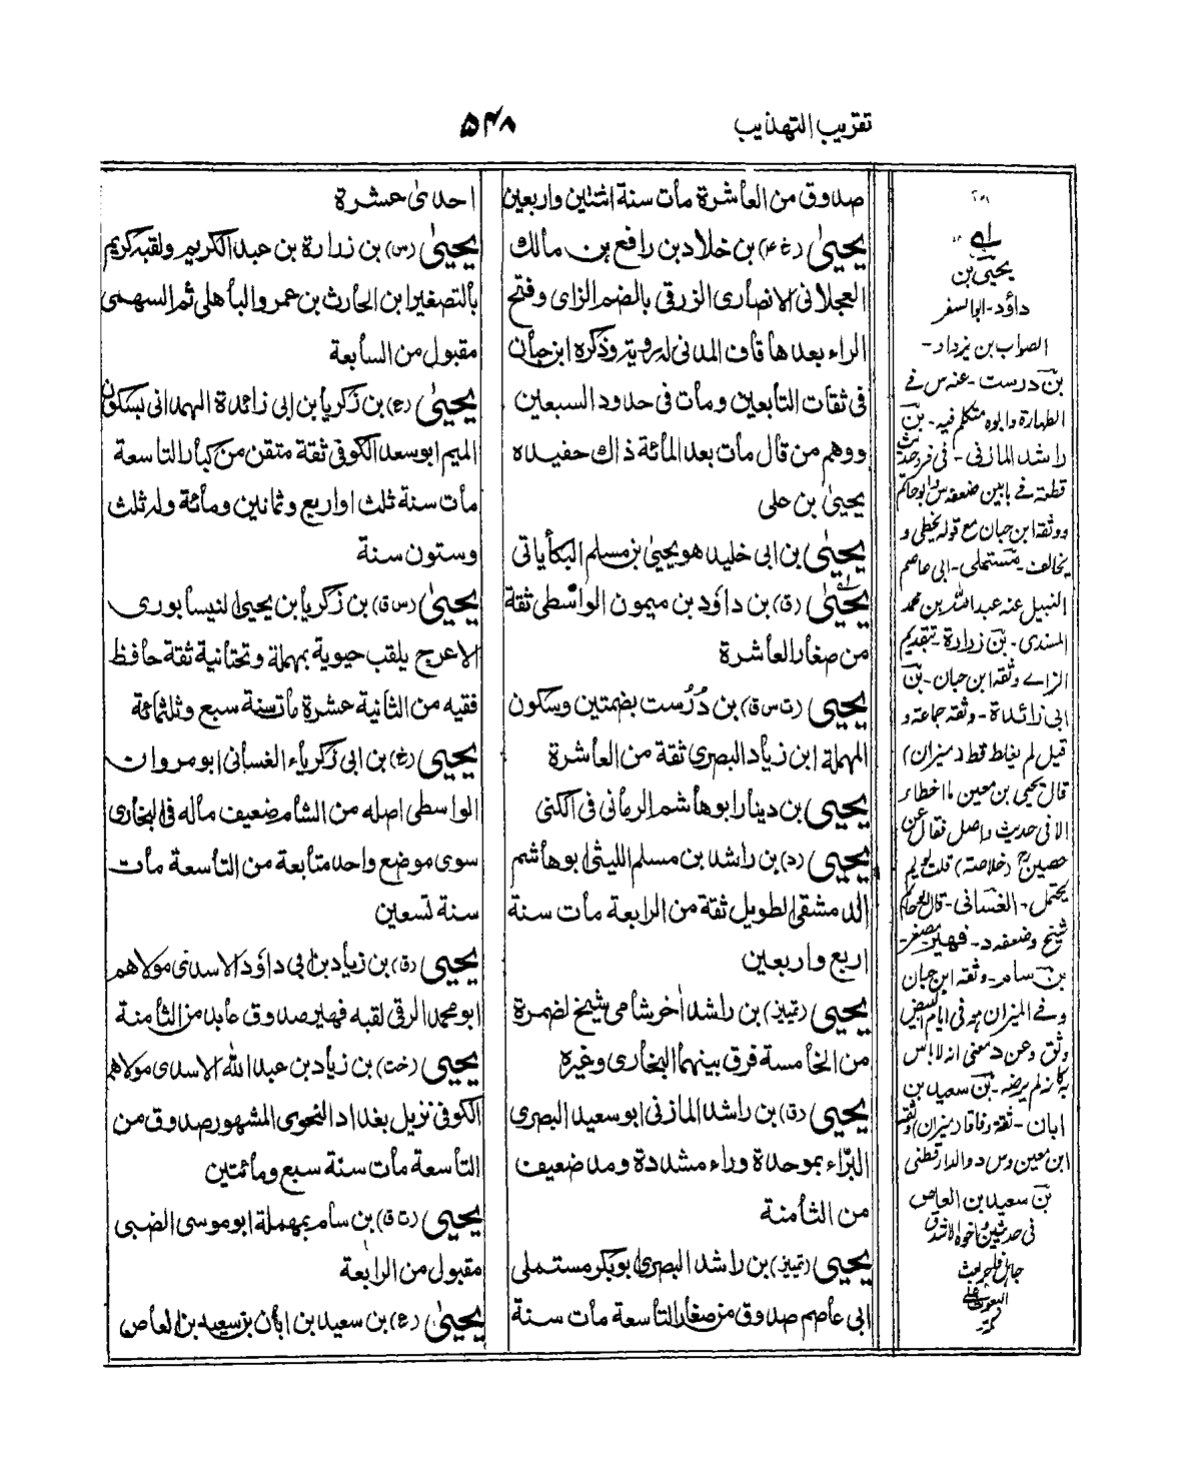 تقريب التهذيب
۵۴۸
صدوق من العاشرة مات سنة اثنتين واربعين
يحيىٰ (خ ۴) بن خلاد بن رافع بن مالك
العجلانى الانصارى الزرقى بالضم الزاى وفتح
الراء بعدها قاف المدنى له روية وذكره ابن حبان
فى ثقات التابعين ومات فى حدود السبعين
ووهم من قال مات بعد المائة ذاك حفيده
يحيىٰ بن على
يحيىٰ بن ابى خليد هو يحيىٰ بن مسلم البكاياتى
يحيىٰ (ق) بن داؤد بن ميمون الواسطى ثقة
من صغار العاشرة
يحيى (ت س ق) بن دُرُست بضمتين وسكون
المهملة ابن زياد البصرى ثقة من العاشرة
يحيى بن دينار ابو هاشم الرمانى فى الكنى
يحيى (د) بن راشد بن مسلم الليثى ابو هاشم
الدمشقى الطويل ثقة من الرابعة مات سنة
اربع واربعين
يحيى (تمييز) بن راشد اٰخر شامى شيخ لضمرة
من الخامسة فرق بينهما البخارى وغيره
يحيى (ق) بن راشد المازنى ابو سعيد البصرى
البرّاء بموحدة وراء مشددة ومد ضعيف
من الثامنة
يحيى (تمييز) بن راشد البصرى ابو بكر مستملى
ابى عاصم صدوق من صغار التاسعة مات سنة
احدىٰ عشرة
يحيىٰ (س) بن زرارة بن عبد الكريم ولقبه كريم
بالتصغير ابن الحارث بن عمرو الباهلى ثم السهمى
مقبول من السابعة
يحيىٰ (ع) بن زكريا بن ابى زائدة الهمدانى بسكون
الميم ابو سعد الكوفى ثقة متقن من كبار التاسعة
مات سنة ثلث او اربع وثمانين ومائة وله ثلث
وستون سنة
يحيىٰ (س ق) بن زكريا بن يحيى النيسابورى
الاعرج يلقب حيوية بمهملة وتحتانية ثقة حافظ
فقيه من الثانية عشرة مات سنة سبع وثلثمائة
يحيى (خ) بن ابى زكرياء الغسانى ابو مروان
الواسطى اصله من الشام ضعيف ماله فى البخارى
سوى موضع واحد متابعة من التاسعة مات
سنة تسعين
يحيى (ق) بن زياد بن ابى داؤد الاسدى مولاهم
ابو محمد الرقى لقبه فهير صدوق عابد من الثامنة
يحيى (خت) بن زياد بن عبد الله الاسدى مولاهم
الكوفى نزيل بغداد النحوى المشهور صدوق من
التاسعة مات سنة سبع ومائتين
يحيى (ت ق) بن سام بمهملة ابو موسى الضبى
مقبول من الرابعة
يحيىٰ (ع) بن سعيد بن ابان بن سعيد بن العاص
يحيى بن
داؤد - ابو السفر
الصواب بن يزداد -
بن درست - عنه س فے
الطهارة وابوه متكلم فيه - بن
راشد المازنى - فى
قطعة فے بابين ضعفه س وابو حاتم
ووثقه ابن حبان مع قوله يخطى و
يخالف - مستملى - ابى عاصم
النبيل عنه عبد الله بن محمد
المسندى - بن زرارة - بتقديم
الزاے وثقه ابن حبان - بن
ابى زائدة - وثقه جماعة و
قيل لم يغلط قط (ميزان)
قال يحيى بن معين ما اخطاء
الا فى حديث واصل فقال عن
حصين (خلاصة) قلت لم
يحتمل - الغسانى - قال ابو حاتم
شيخ وضعفه د - فهير مصغر -
بن سام - وثقه ابن حبان
وفے الميزان هو فى ايام البيض
وثق وعن د معنى انه لا باس
به كانه لم يرضه - بن سعيد بن
ابان - ثقة وفاقا (ميزان) وثقه
ابن معين وس د والدارقطنى
بن سعيد بن العاص
فى حديثين واخوه الاشدق